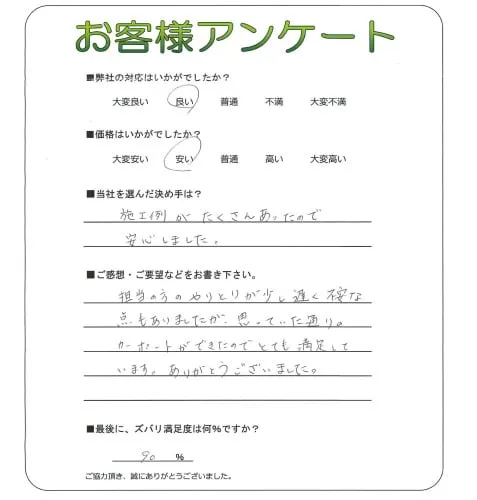 お客様アンケート
■弊社の対応はいかがでしたか?
大変良い 良い 普通 不満 大変不満
■価格はいかがでしたか?
大変安い 安い 普通 高い 大変高い
■当社を選んだ決め手は?
施工例がたくさんあったので
安心しました。
■ご感想・ご要望などをお書き下さい。
担当の方のやりとりが少し遅く不安な
点もありましたが、思っていた通り。
カーポートができたのでとても満足して
います。ありがとうございました。
■最後に、ズバリ満足度は何%ですか?
90 %
ご協力頂き、誠にありがとうございました。